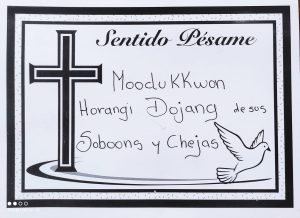 Sentido Pésame
MooduKKwon
Horangi Dojang de sus
Soboons y Chejas